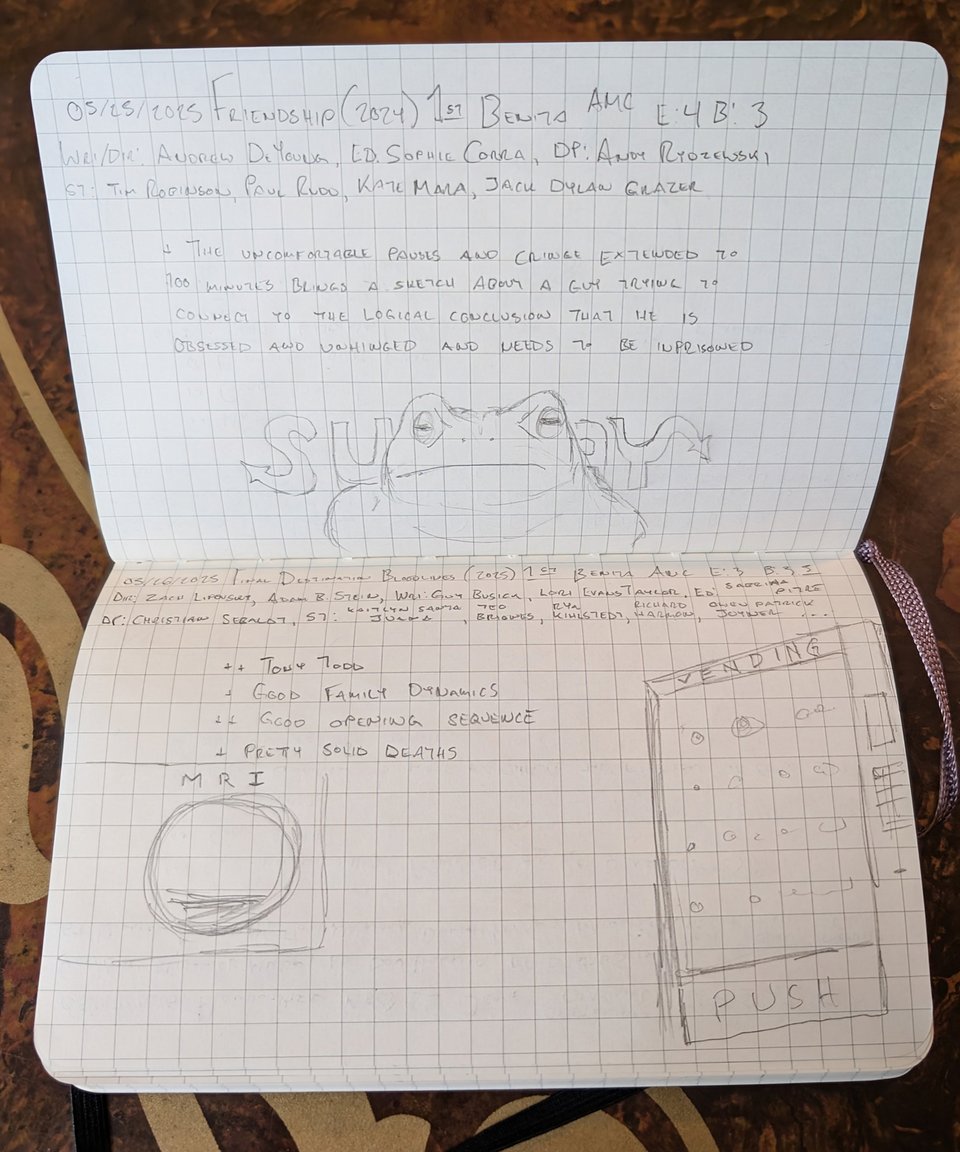 05/25/2025 FRIENDSHIP (2024) 1ST BENITA AMC E:4 B:3
WRI/DIR: ANDREW DEYOUNG, ED. SOPHIE CORRA, DP: ANDY RYDZEWSKI
ST: TIM ROBINSON, PAUL RUDD, KATE MARA, JACK DYLAN GRAZER
+ THE UNCOMFORTABLE PAUSES AND CRINGE EXTENDED TO
100 MINUTES BRINGS A SKETCH ABOUT A GUY TRYING TO
CONNECT TO THE LOGICAL CONCLUSION THAT HE IS
OBSESSED AND UNHINGED AND NEEDS TO BE INPRISONED
SU DY
05/26/2025 FINAL DESTINATION BLOODLINES (2025) 1ST BENITA AMC E:3 B:3.5
DIR: ZACH LIPOVSKY, ADAM B. STEIN, WRI: GUY BUSICK, LORI EVANS TAYLOR, ED: SABRINA PITRE
DP: CHRISTIAN SEBALDT, ST: KAITLYN SANTA JUANA, TEO BRIONES, RYA KIHLSTEDT, RICHARD HARMON, OWEN PATRICK JOYNER ...
++ TONY TODD
+ GOOD FAMILY DYNAMICS
++ GOOD OPENING SEQUENCE
+ PRETTY SOLID DEATHS
VENDING
MRI
PUSH